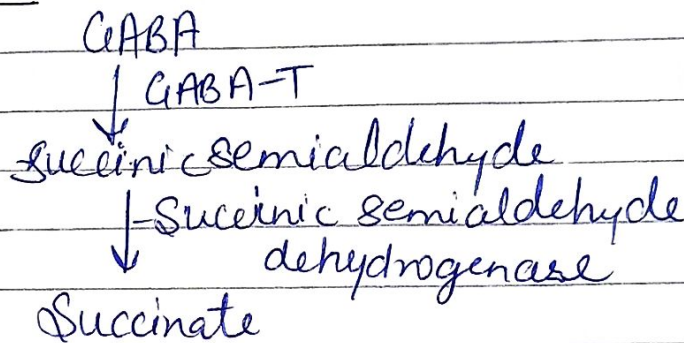 GABA
GABA-T
Succinicsemialdehyde
Succinic semialdehyde
dehydrogenase
Succinate